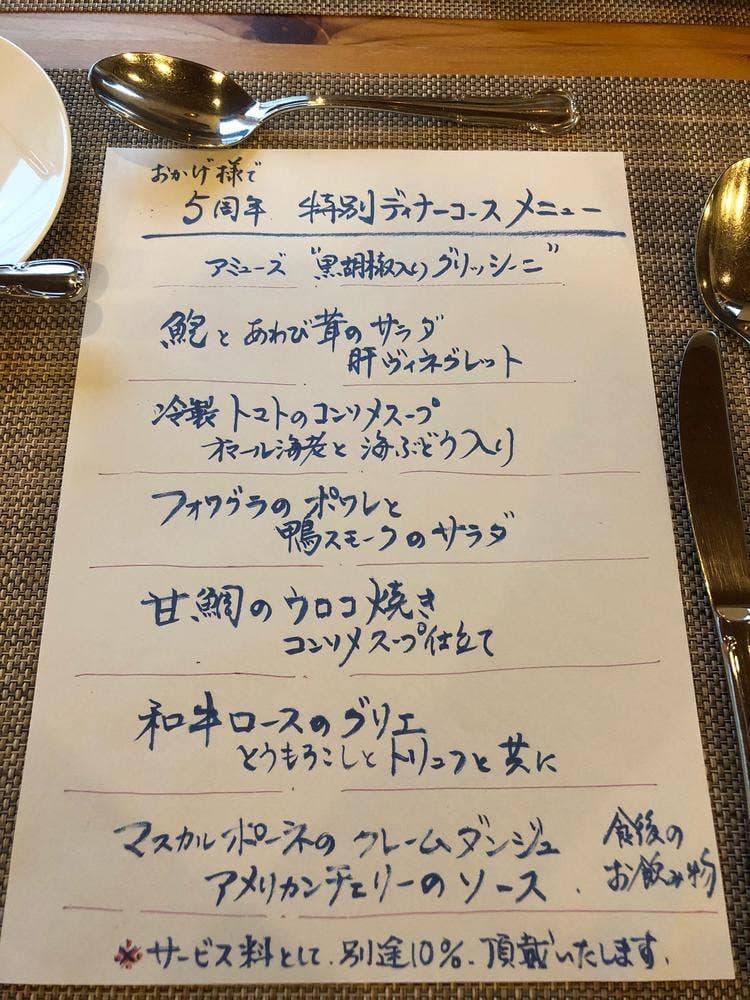 おかげ様で
5周年 特別ディナーコースメニュー
アミューズ "黒胡椒入りグリッシーニ"
鮑とあわび茸のサラダ
肝ヴィネグレット
冷製トマトのコンソメスープ
オマール海老と海ぶどう入り
フォワグラのポワレと
鴨スモークのサラダ
甘鯛のウロコ焼き
コンソメスープ仕立て
和牛ロースのグリエ
とうもろこしとトリュフと共に
マスカルポーネのクレームダンジュ
アメリカンチェリーのソース.
食後の
お飲み物
※サービス料として、別途10%、頂戴いたします。